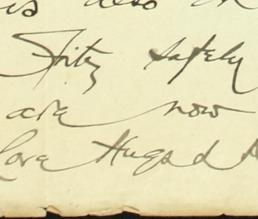 is also
Fritz safely
are now
Love Hugs &